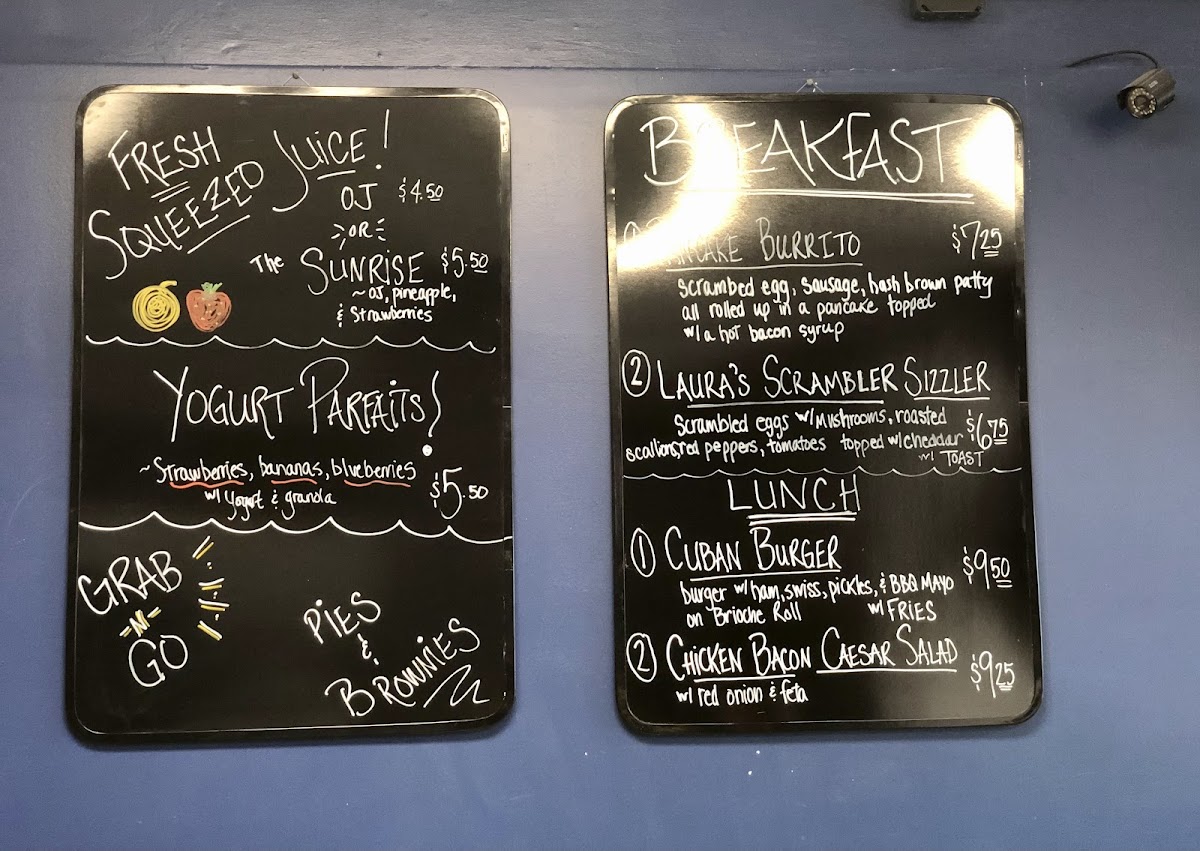 FRESH
SQUEEZED JUICE!
OJ $4.50
OR
The SUNRISE $5.50
~ OJ, pineapple,
& Strawberries
YOGURT PARFAITS!
~Strawberries, bananas, blueberries
w/ Yogurt & granola $5.50
GRAB
-N-
GO
PIES
&
BROWNIES
BREAKFAST
PANCAKE BURRITO $7.25
scrambed egg, sausage, hash brown patty
all rolled up in a pancake topped
w/ a hot bacon syrup
2 LAURA'S SCRAMBLER SIZZLER
Scrambled eggs w/ mushrooms, roasted
scallions, red peppers, tomatoes topped w/ cheddar $6.75
w/ TOAST
LUNCH
1 CUBAN BURGER $9.50
burger w/ ham, swiss, pickles, & BBQ MAYO
on Brioche Roll w/ FRIES
2 CHICKEN BACON CAESAR SALAD
w/ red onion & feta $9.25